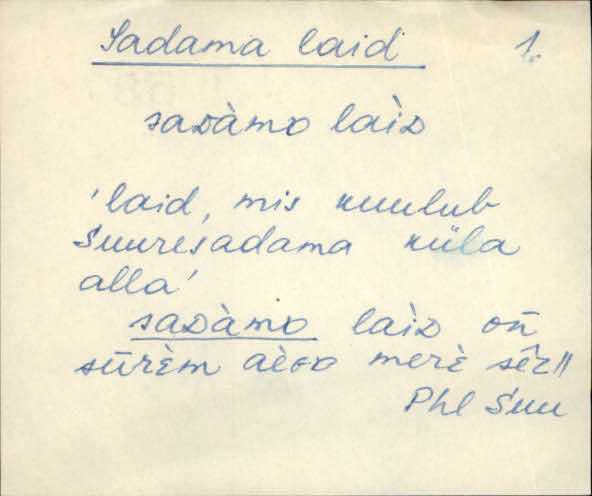 Sadama laid 1.
saᴅàmo laìᴅ
'laid, mis kuulub
Suuresadama küla
alla'
saᴅàmo laìᴅ oñ
sūrèm
merè
Phl Suu